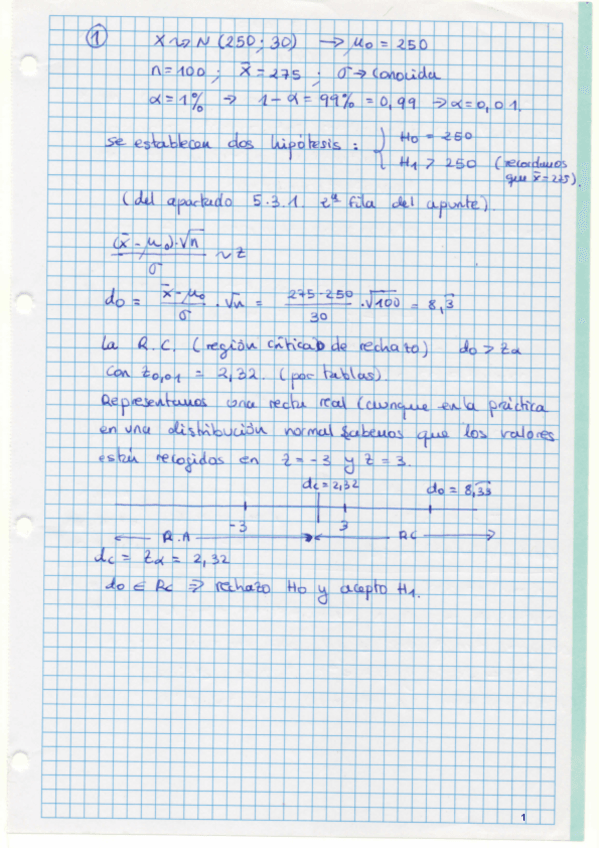 ① X ~> N (250; 30) → μ₀ = 250
n = 100 ; x̄ = 275 ; σ → conocida
α = 1% → 1 - α = 99% = 0,99 → α = 0,01.
se establecen dos hipótesis : { H₀ = 250
H₁ > 250 (recordamos que x̄ = 275).
(del apartado 5.3.1 2ª fila del apunte).
(x̄ - μ₀)·√n / σ ~ Z
d₀ = x̄ - μ₀ / σ · √n = 275 - 250 / 30 · √100 = 8,3̄
La R.C. (región crítica o de rechazo) d₀ > Zα
con Z₀,₀₁ = 2,32. (por tablas).
Representamos una recta real (aunque en la práctica
en una distribución normal sabemos que los valores
están recogidos en z = -3 y z = 3.
dc = 2,32 d₀ = 8,33
-3 3
R.A RC
dc = Zα = 2,32
d₀ ∈ Rc ⇒ rechazo H₀ y acepto H₁.
1